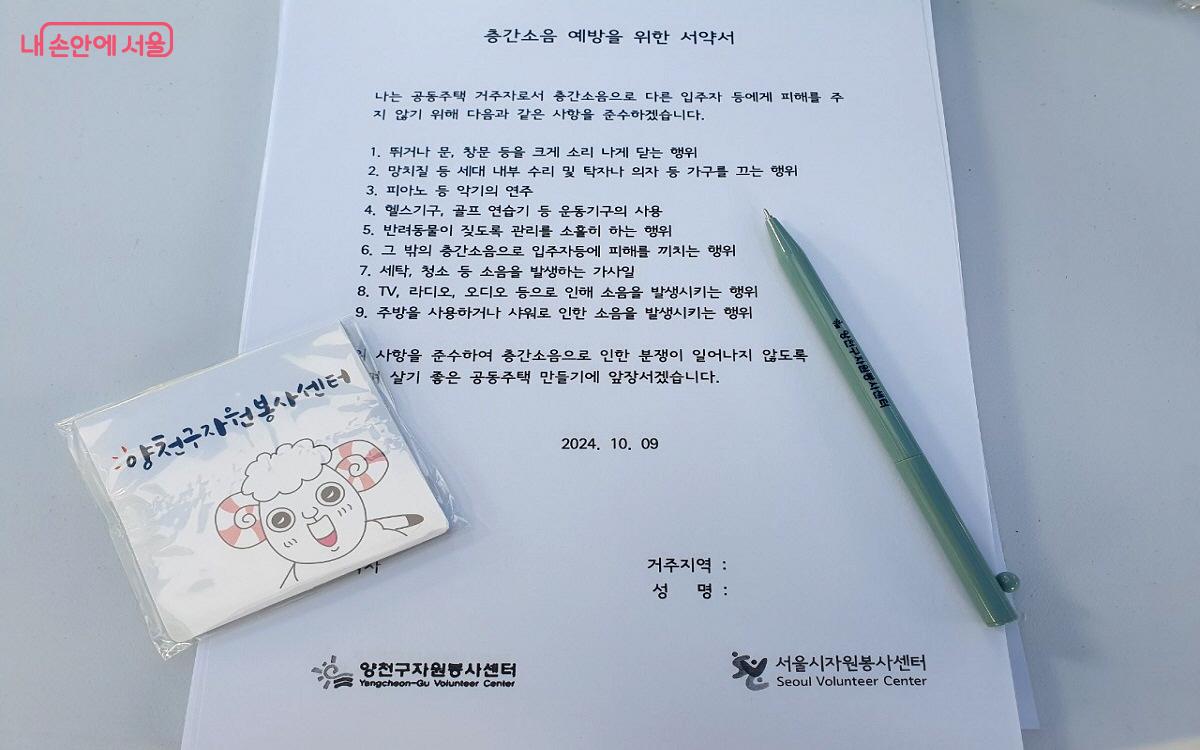 내 손안에 서울
층간소음 예방을 위한 서약서
나는 공동주택 거주자로서 층간소음으로 다른 입주자 등에게 피해를 주
지 않기 위해 다음과 같은 사항을 준수하겠습니다.
1. 뛰거나 문, 창문 등을 크게 소리 나게 닫는 행위
2. 망치질 등 세대 내부 수리 및 탁자나 의자 등 가구를 끄는 행위
3. 피아노 등 악기의 연주
4. 헬스기구, 골프 연습기 등 운동기구의 사용
5. 반려동물이 짖도록 관리를 소홀히 하는 행위
6. 그 밖의 층간소음으로 입주자등에 피해를 끼치는 행위
7. 세탁, 청소 등 소음을 발생하는 가사일
8. TV, 라디오, 오디오 등으로 인해 소음을 발생시키는 행위
9. 주방을 사용하거나 샤워로 인한 소음을 발생시키는 행위
사항을 준수하여 층간소음으로 인한 분쟁이 일어나지 않도록
살기 좋은 공동주택 만들기에 앞장서겠습니다.
2024. 10. 09
거주지역 :
성 명 :
양천구자원봉사센터
Yangcheon-Gu Volunteer Center
서울시자원봉사센터
Seoul Volunteer Center
양천구자원봉사센터
양천구자원봉사센터